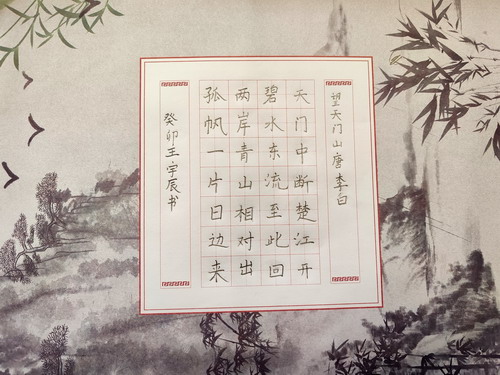 望天门山唐李白
天门中断楚江开
碧水东流至此回
两岸青山相对出
孤帆一片日边来
癸卯王宇辰书